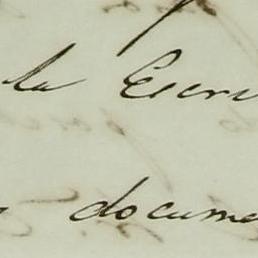 la Escri
docume